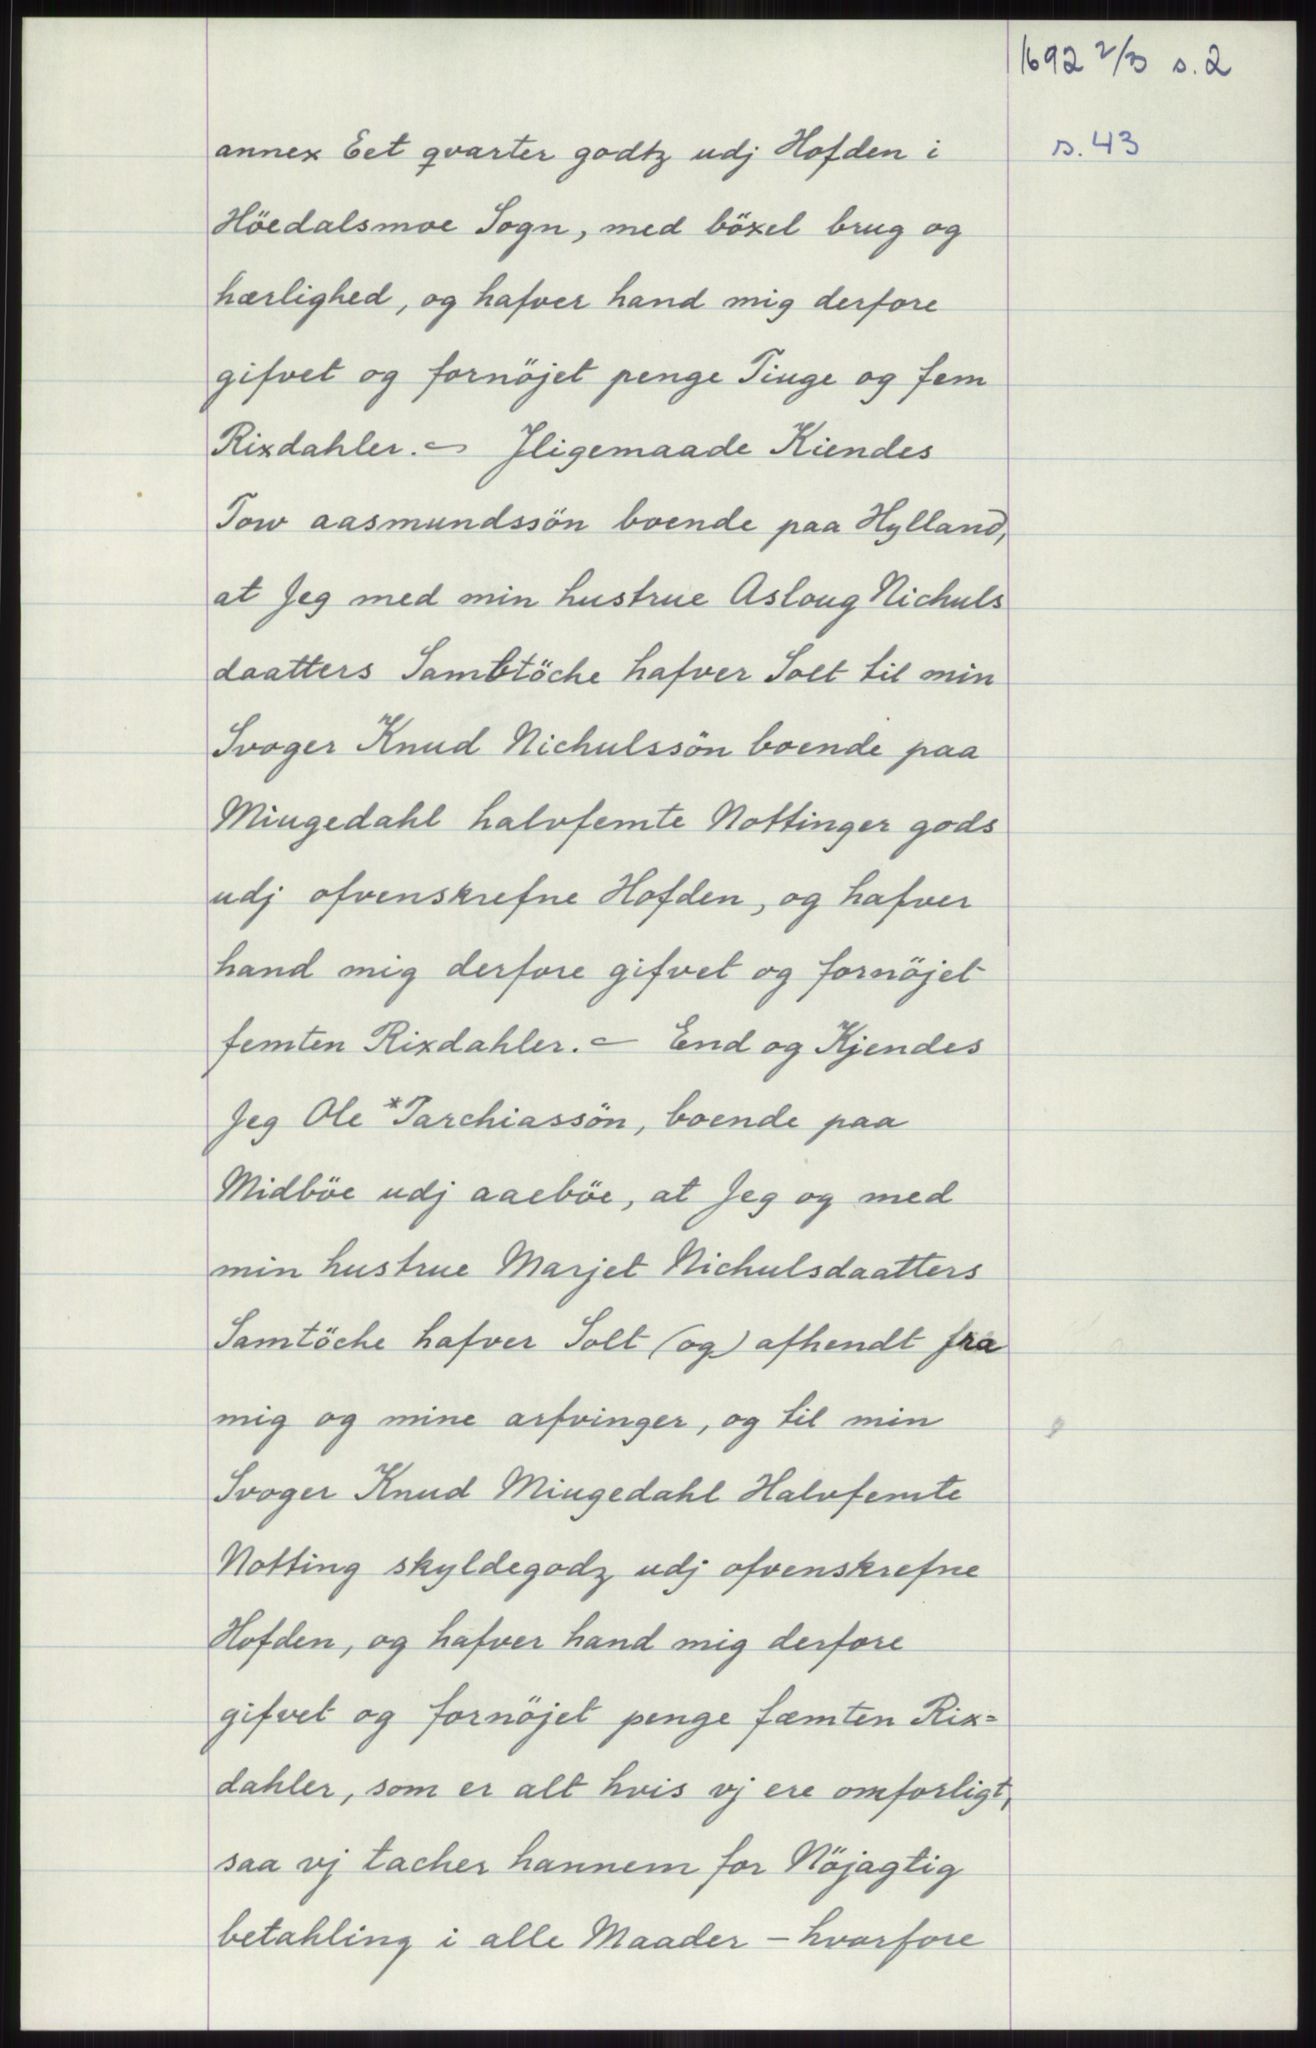 1692 2/3 s. 2
s. 43
annex Eet qvarter godtz udj Hofden i
Höedalsmoe Sogn, med böxel brug og
hærlighed, og hafver hand mig derfore
gifvet og fornöjet penge Tiuge og fem
Rixdahler. – Jligemaade Kiendes
Tow aasmundssön boende paa Hylland,
at Jeg med min hustrue Asloug Nichuls
daatters Sambtöche hafver Solt til min
Svoger Knud Nichulssön boende paa
Miugedahl halvfemte Nottinger gods
udj ofvenskrefne Hofden, og hafver
hand mig derfore gifvet og fornöjet
femten Rixdahler. – End og Kjendes
Jeg Ole *Tarchiassön, boende paa
Midböe udj aaeböe, at Jeg og med
min hustrue Marjet Nichulsdaatters
Samtöche hafver Solt (og) afhendt fra
mig og mine arfvinger, og til min
Svoger Knud Miugedahl Halvfemte
Notting skyldegodz udj ofvenskrefne
Hofden, og hafver hand mig derfore
gifvet og fornöjet penge fæmten Rix=
dahler, som er alt hvis vj ere omforligt,
saa vj tacher hannem for Nöjagtig
betahling i alle Maader – hvorfore